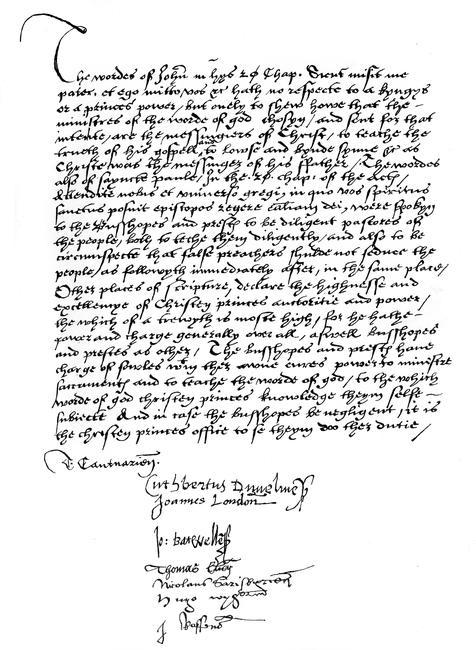 The wordes of John in hys 20 Chap. Sicut misit me
pater, et ego mitto vos &c hath no respecte to a kyngys
or a princes power, but onely to shew howe that the
ministres of the worde of god chosyn, and sent for that
intente, are the messyngiers of Christ, to teache the
trueth of his gospell, and to lowse and bynde synne &c as
Christe was the messinger of his ffather, The wordes
also of sayncte paule, in the 20. chap: of the actes,
Attendite vobis et universo gregi, in quo vos spiritus
sanctus posuit episcopos regere ecclesiam dei, were spokyn
to the Busshopes and prests to be diligent pastores of
the people, both to teche them diligently, and also to be
circumspecte that false preachers shulde not seduce the
people, as followyth immediately after, in the same place,
Other places of scripture, declare the highnesse and
excellencye of Christen princes auctoritie and power,
the which of a trewyth is moste high, for he hathe
power and charge generally over all, aswell Busshopes
and prestes as other, The Busshopes and prests have
charge of sowles wtin ther awne cures, power to ministre
sacraments and to teache the worde of god, to the which
worde of god christen princes knowledge theym selfe
subiecte And in case the busshopes be negligent, it is
the christen princes office to se theym doo ther dutie,
T. Cantuarien.
Cuthbertus Dunelmens
Joannes London
Jo: Barwellens
Thomas Elien
Nicolaus Sarisburien
Hugo wygorn
J Roffens